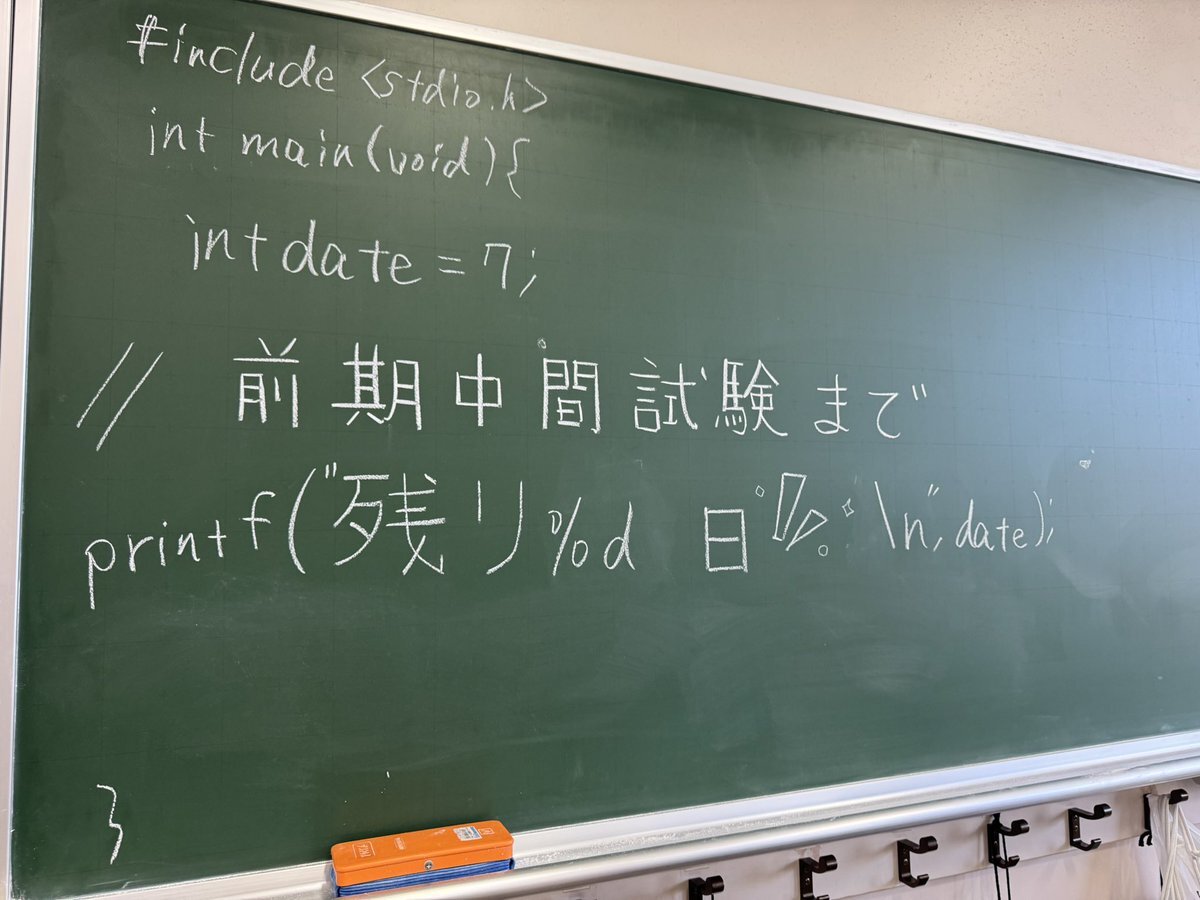 #include <stdio.h>
int main(void){
int date = 7;
// 前期中間試験まで
printf("残り%d 日!! \n", date);
}